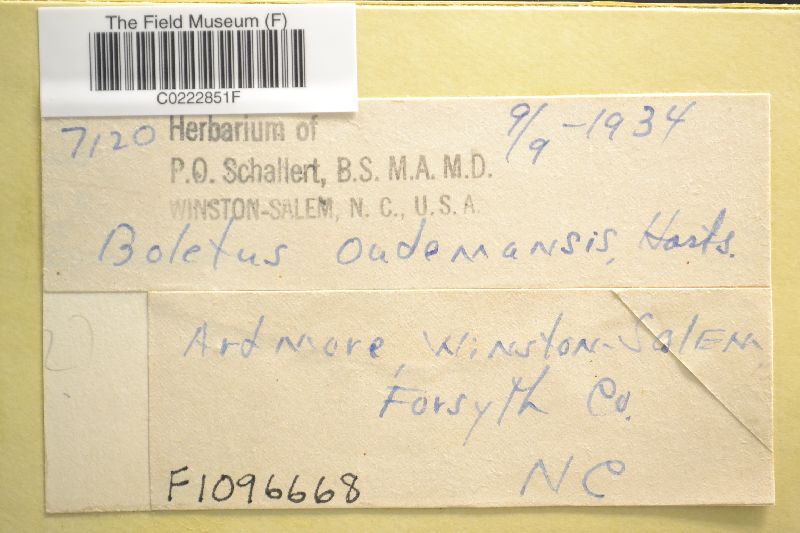 The Field Museum (F)
C0222851F
7120 Herbarium of 9/9-1934
P.O. Schallert, B.S. M.A. M.D.
WINSTON-SALEM, N. C., U. S. A.
Boletus oudemansis, Harts.
Ardmore, Winston-Salem,
Forsyth Co.
NC
F1096668